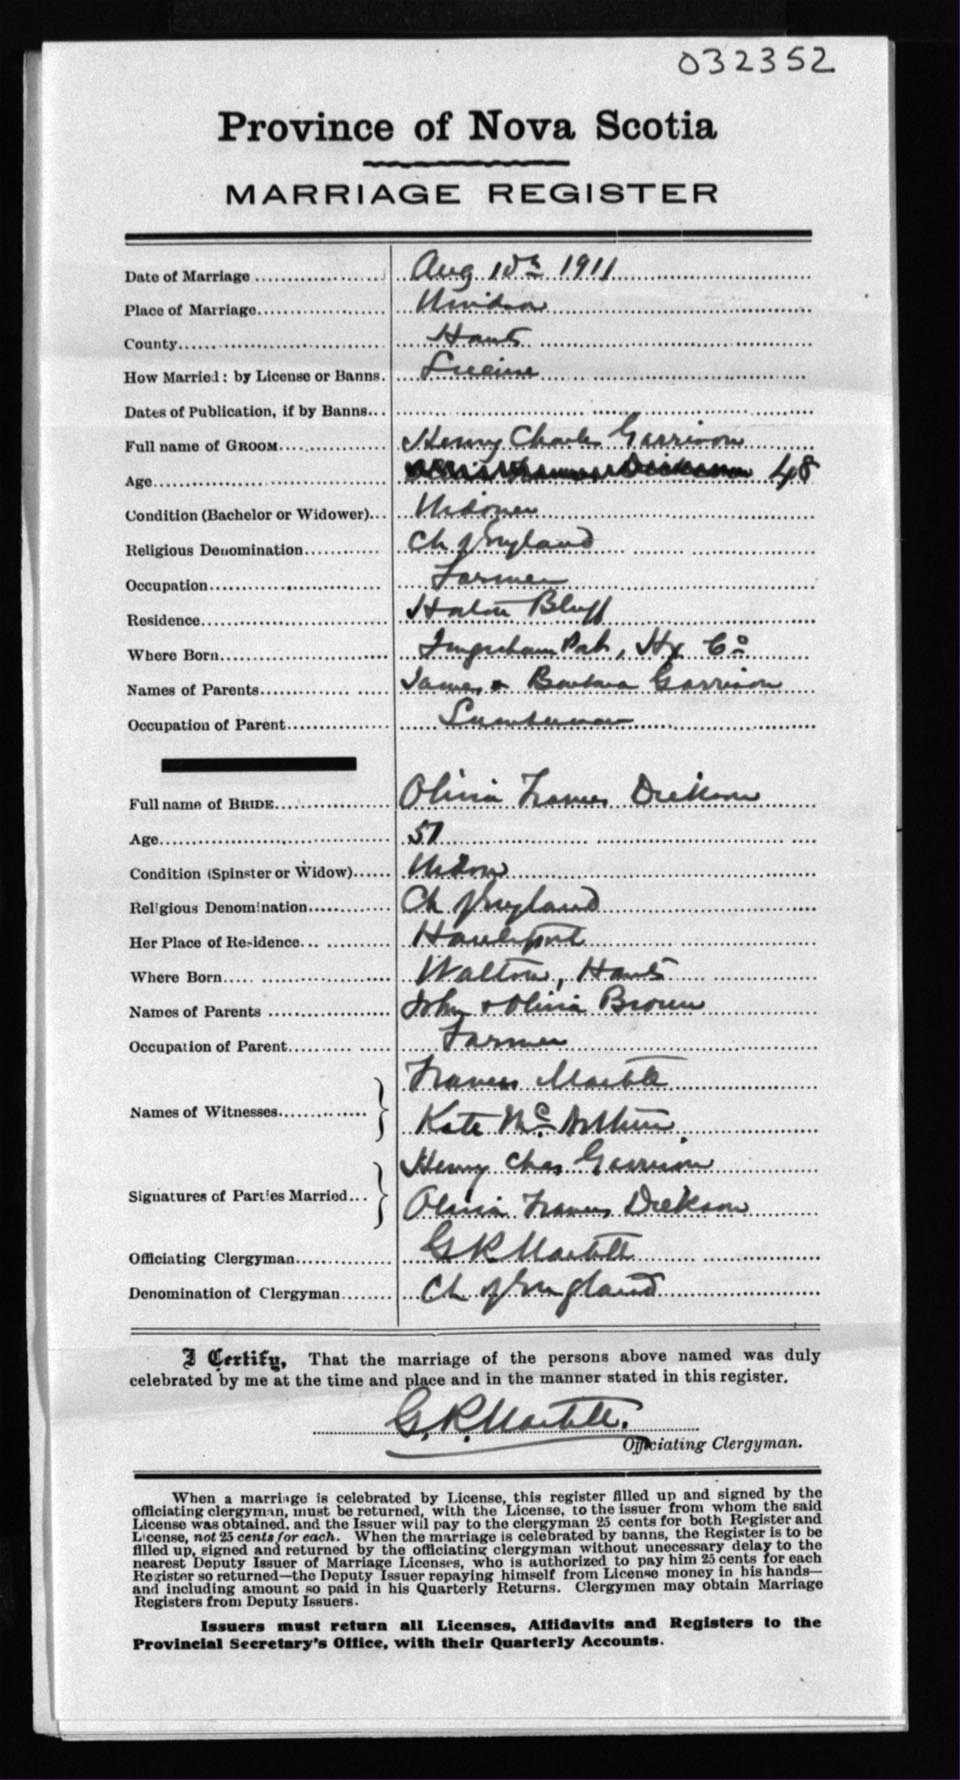 032352
Province of Nova Scotia
MARRIAGE REGISTER
Date of Marriage Aug 10th 1911
Place of Marriage Windsor
County Hants
How Married: by License or Banns. License
Dates of Publication, if by Banns
Full name of GROOM Henry Charles Garrison
Age 48
Condition (Bachelor or Widower) Widower
Religious Denomination Ch of England
Occupation Farmer
Residence Horton Bluff
Where Born Ingraham Port, Hx Co
Names of Parents James & Barbara Garrison
Occupation of Parent Lumberman
Full name of BRIDE Olivia Frances Dickson
Age 51
Condition (Spinster or Widow) Widow
Religious Denomination Ch of England
Her Place of Residence Hantsport
Where Born Walton, Hants
Names of Parents John & Olivia Brown
Occupation of Parent Farmer
Names of Witnesses Frances Martell
Kate McArthur
Signatures of Parties Married Henry Chas Garrison
Olivia Frances Dickson
Officiating Clergyman G R Martell
Denomination of Clergyman Ch of England
I Certify, That the marriage of the persons above named was duly
celebrated by me at the time and place and in the manner stated in this register.
G. R. Martell.
Officiating Clergyman.
When a marriage is celebrated by License, this register filled up and signed by the
officiating clergyman, must be returned, with the License, to the issuer from whom the said
License was obtained, and the Issuer will pay to the clergyman 25 cents for both Register and
License, not 25 cents for each. When the marriage is celebrated by banns, the Register is to be
filled up, signed and returned by the officiating clergyman without unecessary delay to the
nearest Deputy Issuer of Marriage Licenses, who is authorized to pay him 25 cents for each
Register so returned—the Deputy Issuer repaying himself from License money in his hands—
and including amount so paid in his Quarterly Returns. Clergymen may obtain Marriage
Registers from Deputy Issuers.
Issuers must return all Licenses, Affidavits and Registers to the
Provincial Secretary's Office, with their Quarterly Accounts.